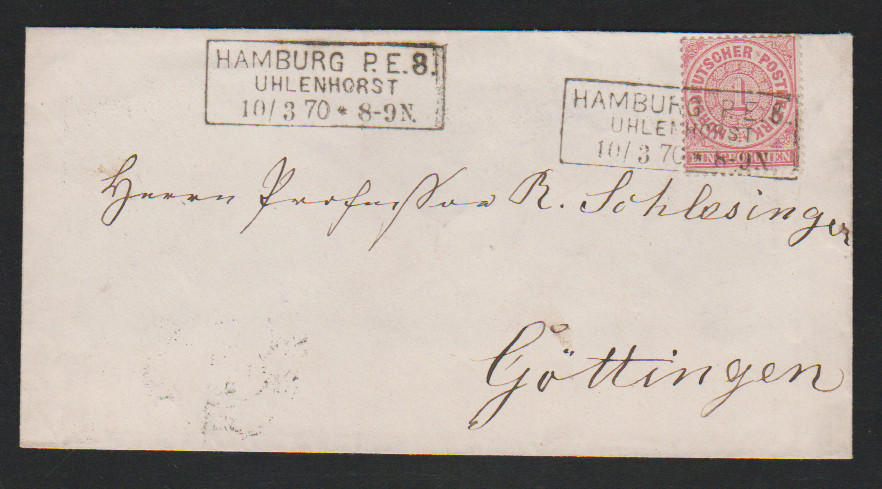 HAMBURG P.E.8.
UHLENHORST
10/3 70 * 8-9N.
HAMBURG P.E.8.
UHLENHORST
10/3 70 * 8-9N
DEUTSCHER POST
1
Herrn Professor R. Schlesinger
Göttingen